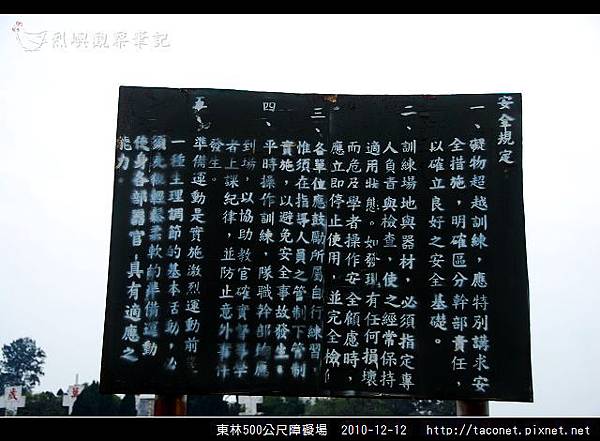 烈嶼觀察筆記
安全規定
一、礙物超越訓練，應特別講求安
全措施，明確區分幹部責任，
以確立良好之安全基礎。
二、訓練場地與器材，必須指定專
人負音與檢查，使之經常保持
適用狀態。如發現有任何損壞
而危及學者操作安全顧慮時，
應立即停止使用，並完全檢修
三、各單位應鼓勵所屬自行練習，
惟須在指導人員之管制下管制
實施，以避免安全事故發生。
四、平時操作訓練，隊職幹部均應
到場，以協助教官確實督導學
者上課紀律，並防止意外事件
發生。
準備運動是實施激烈運動前
一種生理調節的基本活動，必
須先做輕鬆柔軟的準備運動
使身各部器官，具有適應之
能力。
萬
東林500公尺障礙場 2010-12-12 http://taconet.pixnet.net